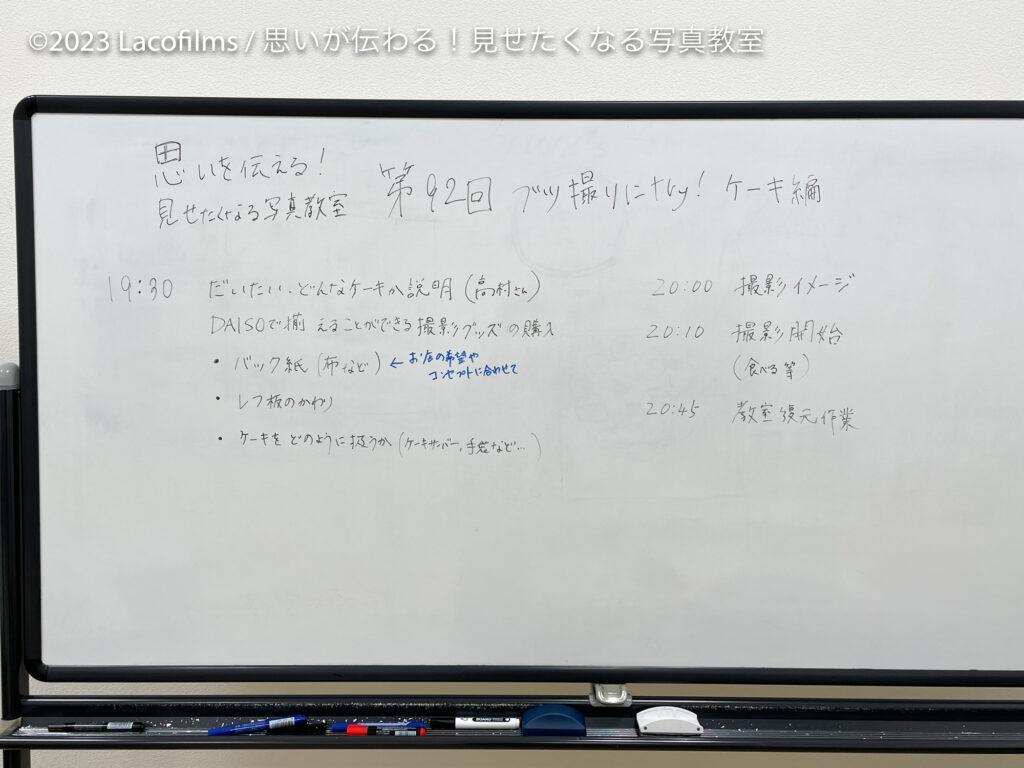 ©2023 Lacofilms / 思いが伝わる！見せたくなる写真教室
思いを伝える！
見せたくなる写真教室
第92回 ブツ撮りにtry! ケーキ編
19:30 だいたい、どんなケーキか説明（高村さん）
DAISOで揃えることができる撮影グッズの購入
・バック紙（布など）← お店の希望や
コンセプトに合わせて
・レフ板のかわり
・ケーキをどのように扱うか（ケーキサーバー, 手袋など…）
20:00 撮影イメージ
20:10 撮影開始
（食べる等）
20:45 教室復元作業